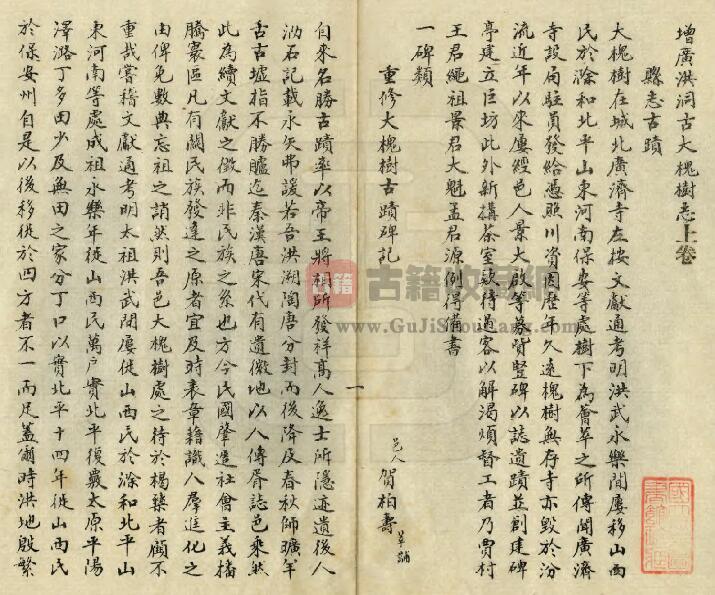 增廣洪洞古大槐樹志上卷
縣志古蹟
大槐樹在城北廣濟寺左按文獻通考明洪武永樂間屢移山西
民於滁和北平山東河南保安等處樹下為會萃之所傳聞廣濟
寺設局駐員發給憑照川資因歷年久遠槐樹無存寺亦毀於汾
流近年以來屢經邑人景大啟等募貲豎碑以誌遺蹟並創建碑
亭建立巨坊此外新搆茶室欵待過客以解渴煩督工者乃賈村
王君繩祖景君大魁孟君源例得備書
一碑類
重修大槐樹古蹟碑記
邑人 賀柏壽 草辅
自來名勝古蹟率以帝王將相所發祥高人逸士所隱迹遺後人
泐石記載永矢弗諼若吾洪溯閭唐分封而後降及春秋師曠羊
舌古墟指不勝臚迄秦漢唐宋代有遺徽地以人傳胥誌邑乘然
此為續文獻之徵而非民族之系也方今民國肇造社會主義播
騰寰區凡有關民族發達之原者宜及時表章藉識人羣進化之
由俾免數典忘祖之誚然則吾邑大槐樹處之待於楬櫫者顧不
重哉嘗稽文獻通考明太祖洪武間屢徙山西民於滁和北平山
東河南等處成祖永樂年徙山西民萬戶實北平復覈太原平陽
澤潞丁多田少及無田之家分丁口以實北平十四年徙山西民
於保安州自是以後移徙於四方者不一而足蓋爾時洪地殷繁
一
古籍
古籍收藏網
www.GuJiShouCang.com